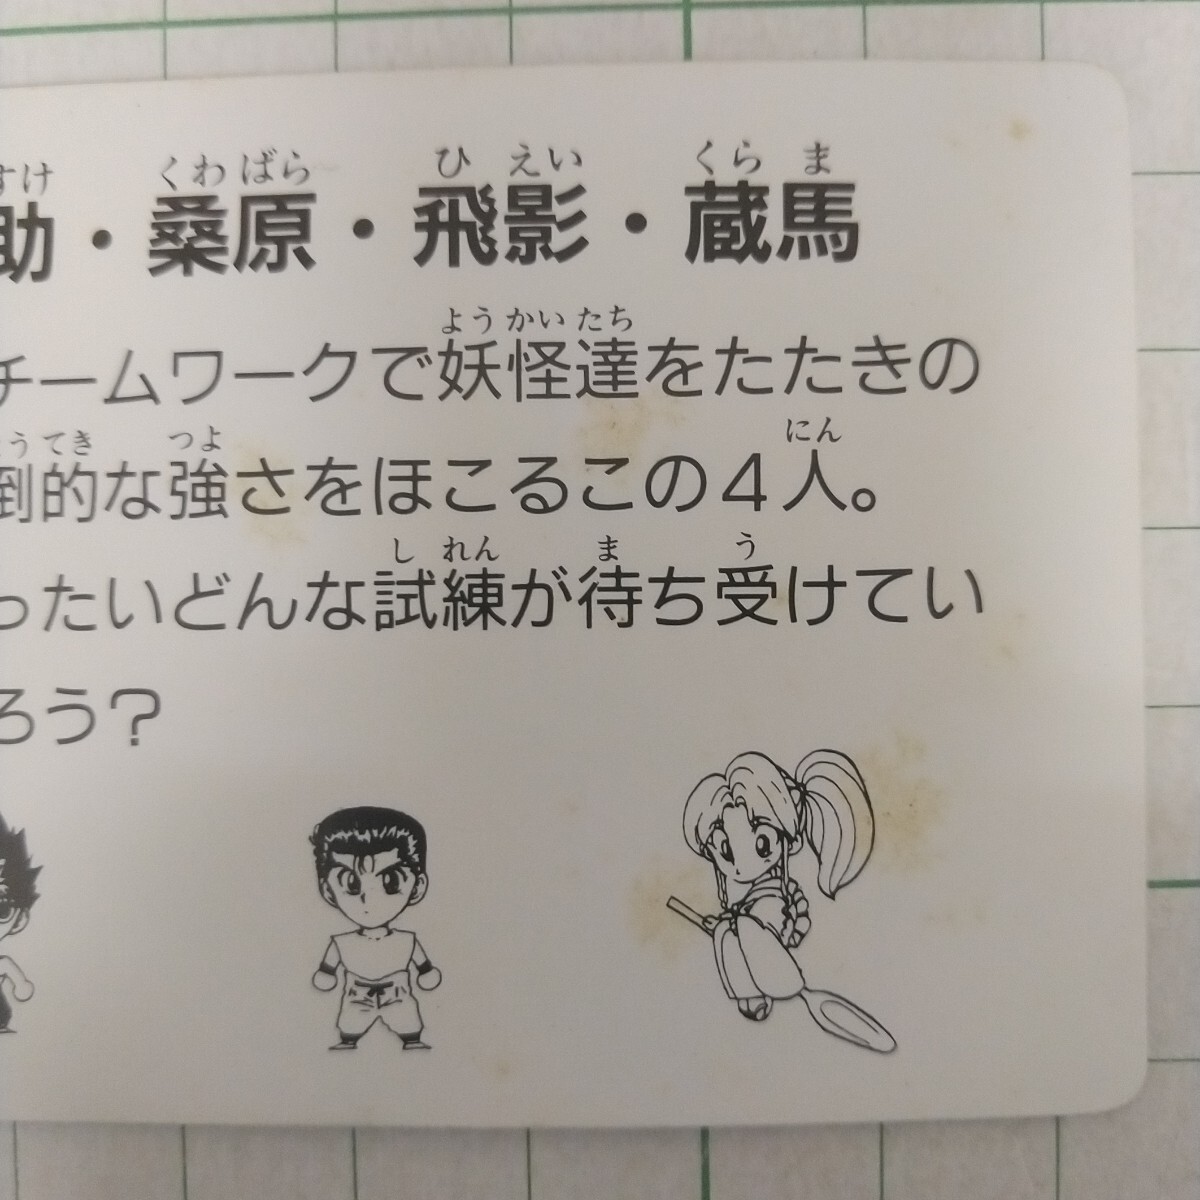 すけ くわ ばら ひ えい くら ま
助・桑原・飛影・蔵馬
よう かい たち
チームワークで妖怪達をたたきの
うてき つよ にん
倒的な強さをほこるこの4人。
し れん ま う
ったいどんな試練が待ち受けてい
ろう?